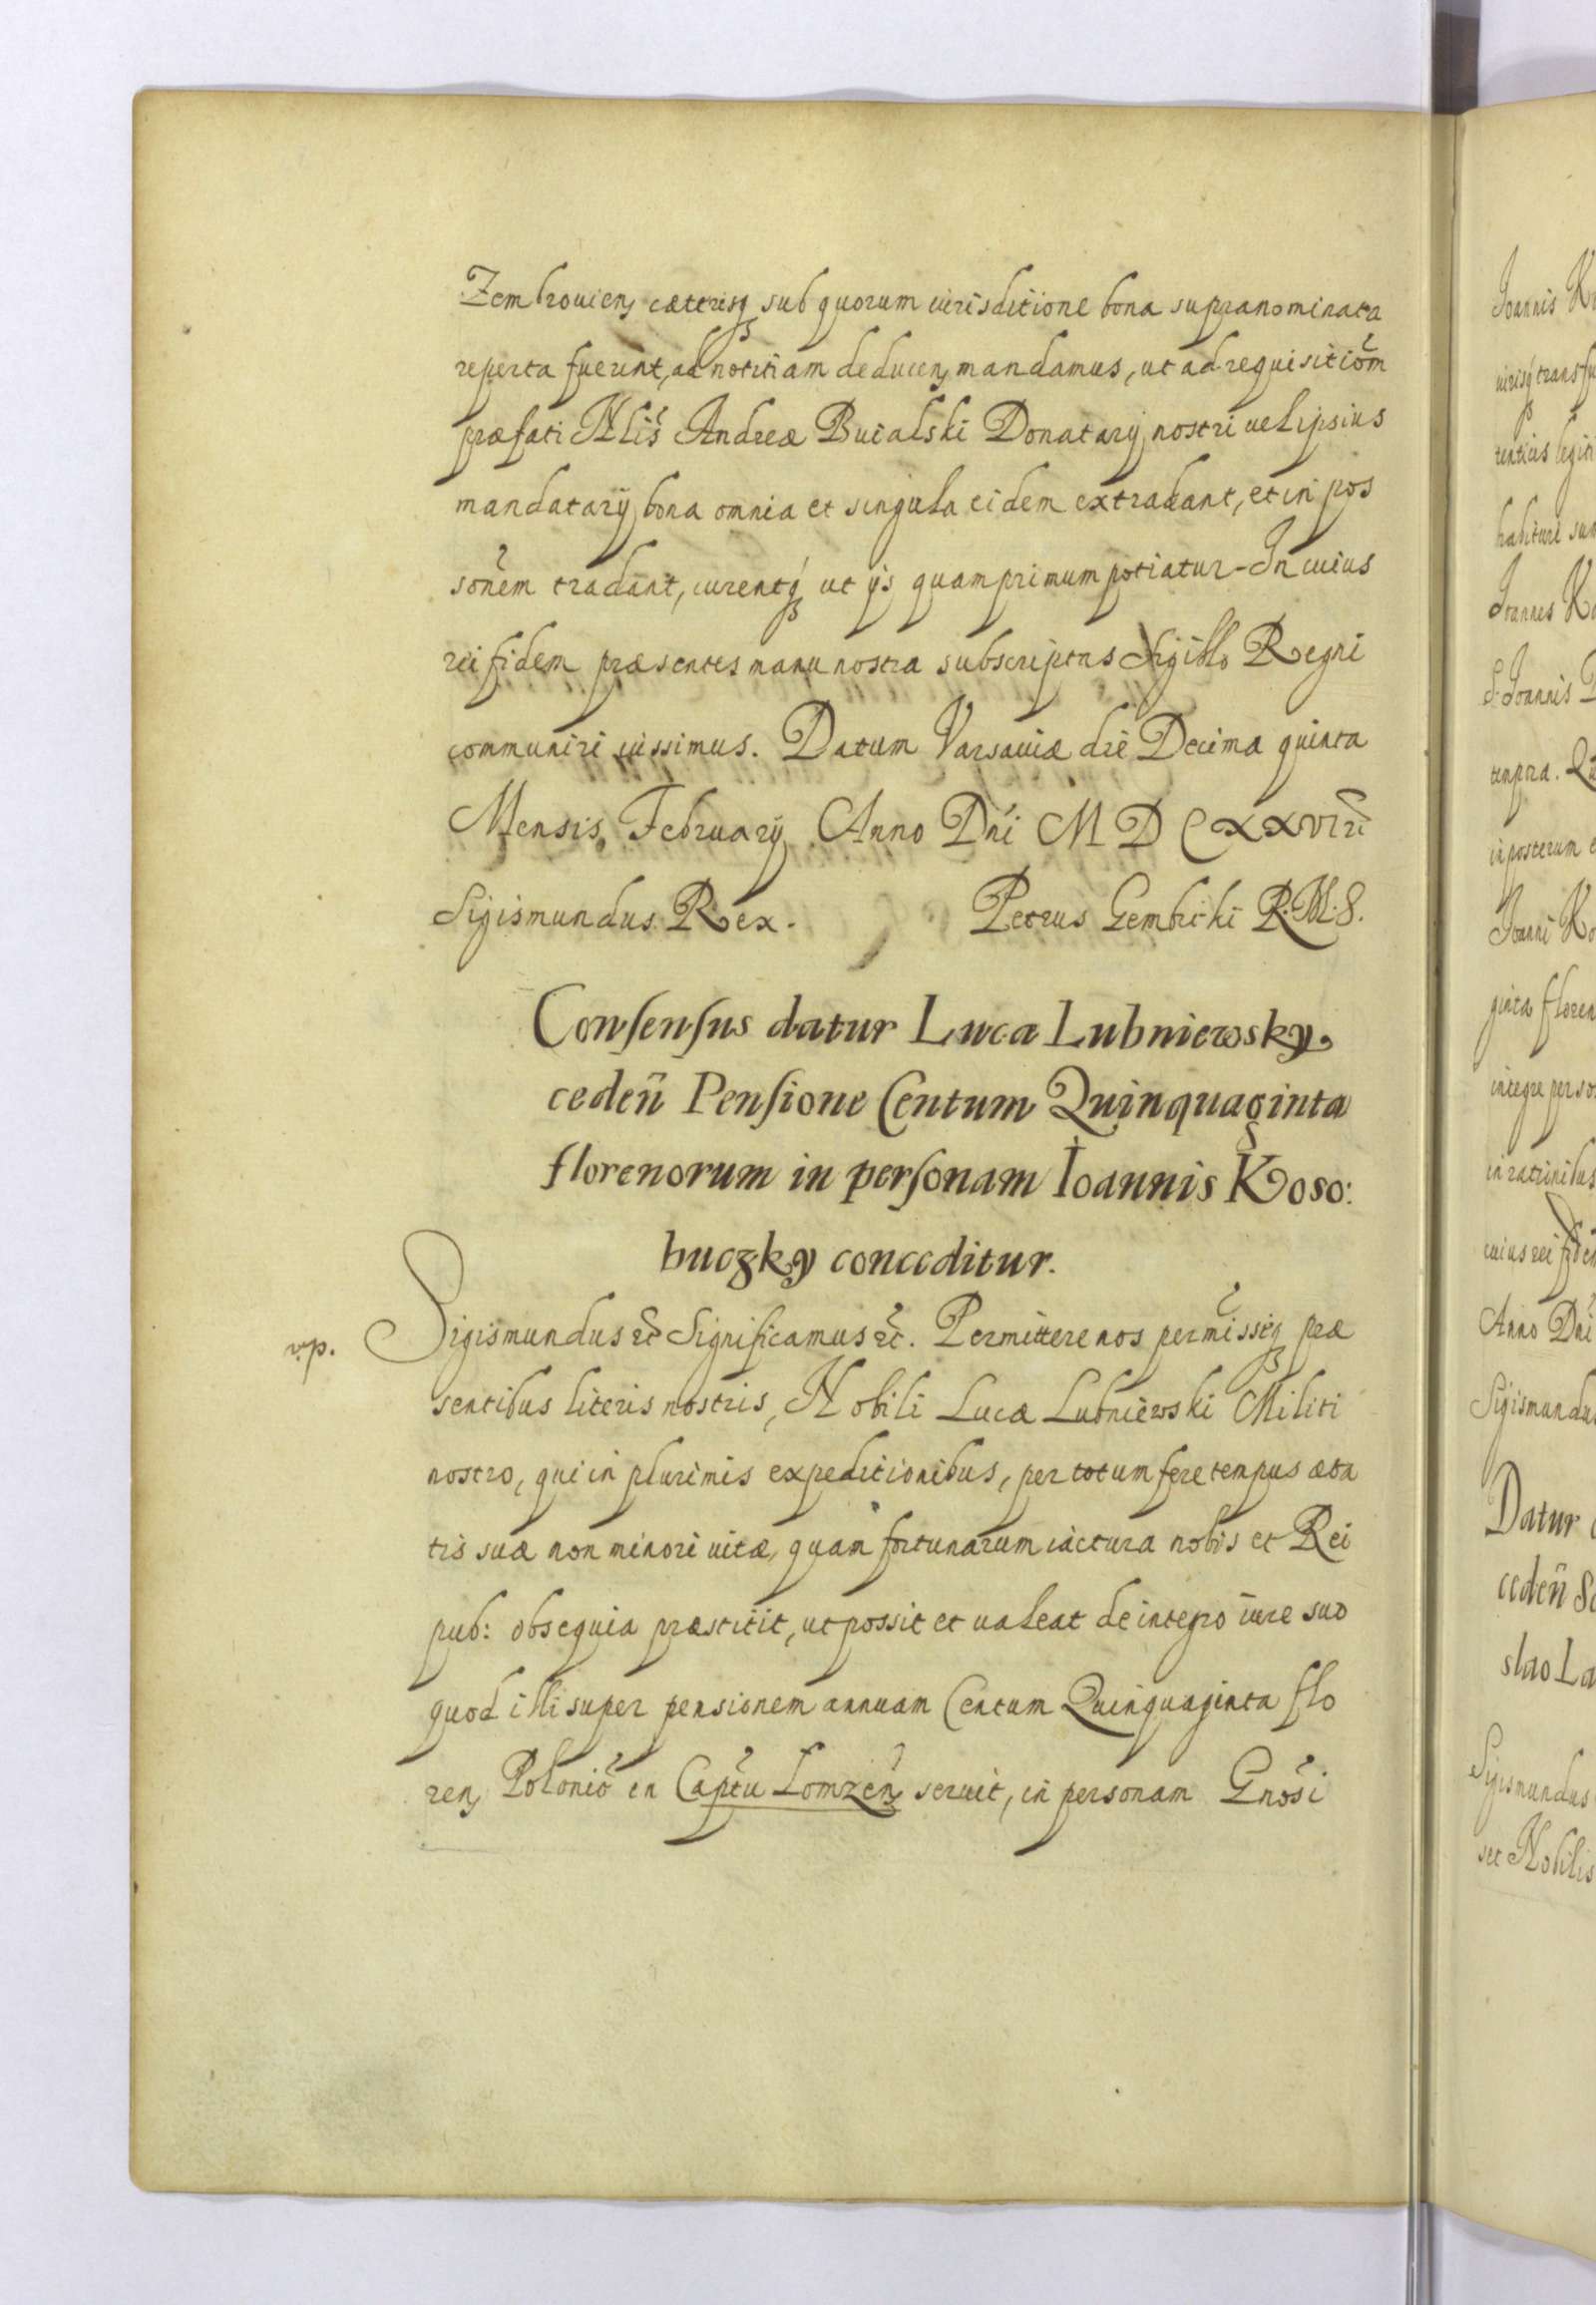 Zembrouien, cæterisq, sub quorum iurisditione bona supranominata
reperta fuerint, ad notitiam deducen, mandamus, ut ad requisitiõm
præfati Nlis Andreæ Buialski Donatarij nostri uel ipsius
mandatarij bona omnia et singula eidem extradant, et in pos
sonem tradant, curentq, ut ijs quamprimum potiatur - In cuius
rei fidem præsentes manu nostra subscriptas Sigillo Regni
communiri iussimus. Datum Varsauiæ die Decima quinta
Mensis, February Anno Dni M D CXXVII
Sigismundus Rex. Petrus Gembicki R. M. S.
Consensus datur Luca Lubniewsky.
cedeñ Pensione Centum Quinquaginta
florenorum in personam Ioannis Koso:
buczky conceditur.
v.p. Sigismundus etc Significamus etc. Permittere nos permissiq, præ
sentibus literis nostris, Nobili Lucæ Lubniewski Militi
nostro, qui in plurimis expeditionibus, per totum fere tempus æta
tis suæ non minori uitæ, quam fortunarum iactura nobis et Rei
pub: obsequia præstitit, ut possit et ualeat de integro iure suo
quod illi super pensionem annuam Centum Quinquaginta flo
ren, Polonic in Captu Lomzen, seruit, in personam Gnosi
Ioannis
uirisq trans
habituri
Ioannes
S. Ioannis
in posterum
Ioanni
ginta floren
integre
cuius rei fidem
Anno Dni
Sigismundus
Datur
cedeñ
slao La
Sigismundus
set Nobilis